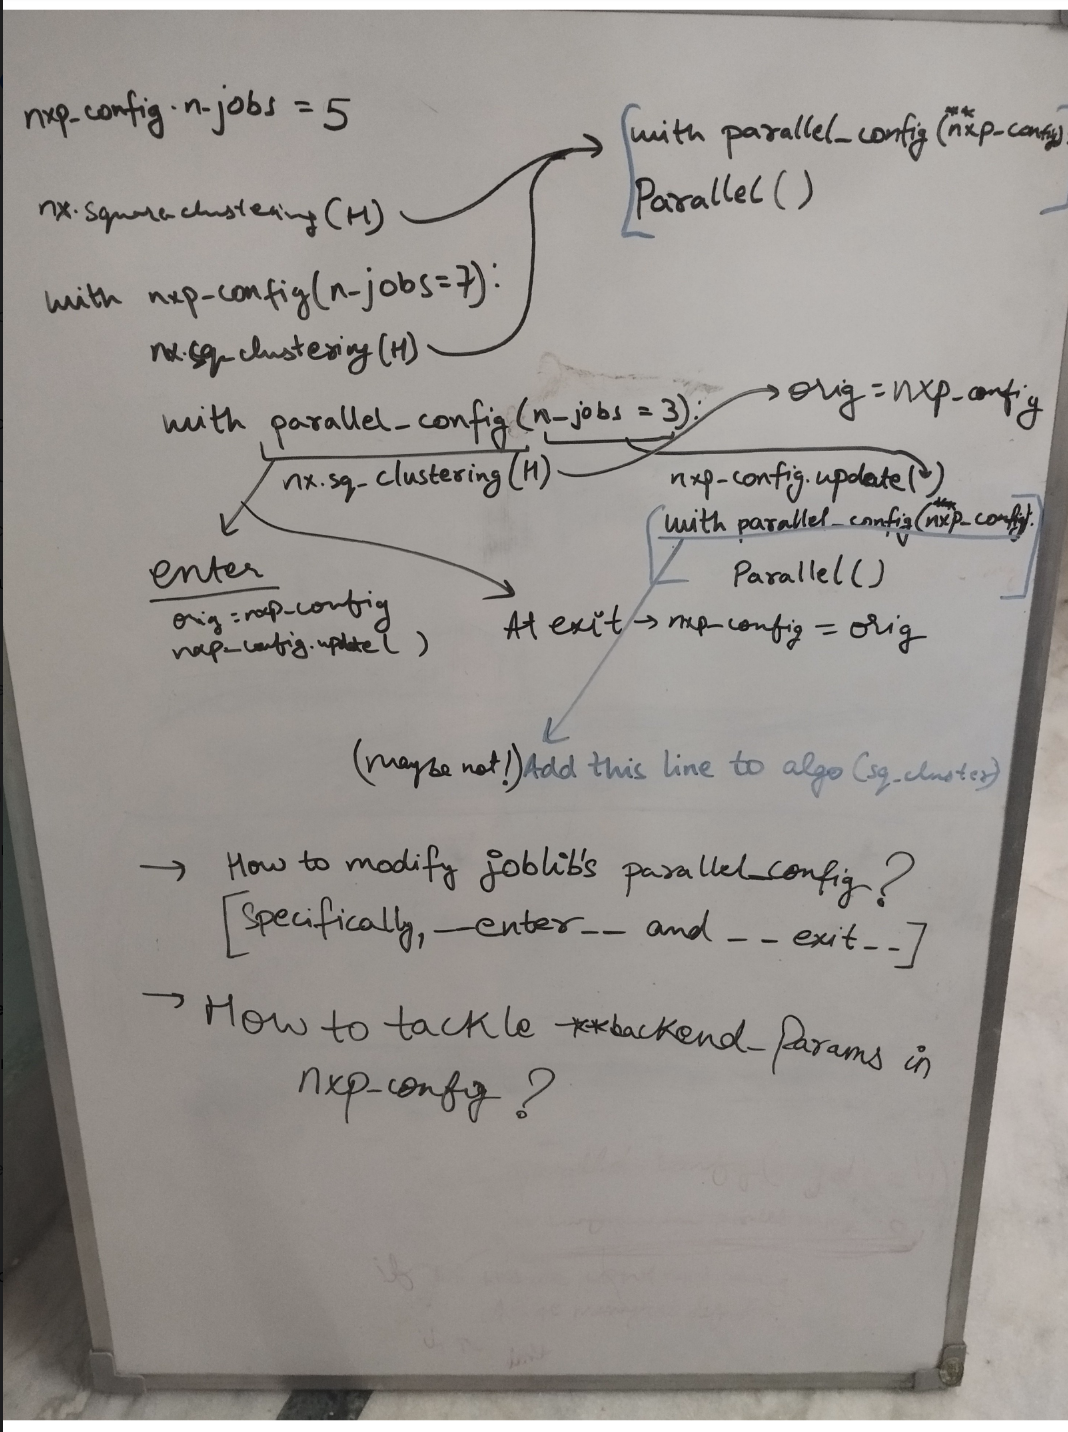 nxp_config.n-jobs = 5
with parallel_config(**nxp-config):
Parallel()
nx.square clustering(H)
with nxp-config(n-jobs=7):
nx.sq_clustering(H)
with parallel_config(n-jobs = 3):
orig = nxp_config
nx.sq_clustering(H)
nxp-config.update( )
with parallel_config(**nxp_config):
Parallel()
enter
orig = nxp-config
nxp_config.update( )
At exit → nxp-config = orig
(maybe not!) Add this line to algo (sq_cluster)
→ How to modify joblib's parallel_config?
[Specifically, __enter__ and __exit__]
→ How to tackle **backend_Params in
nxp-config?